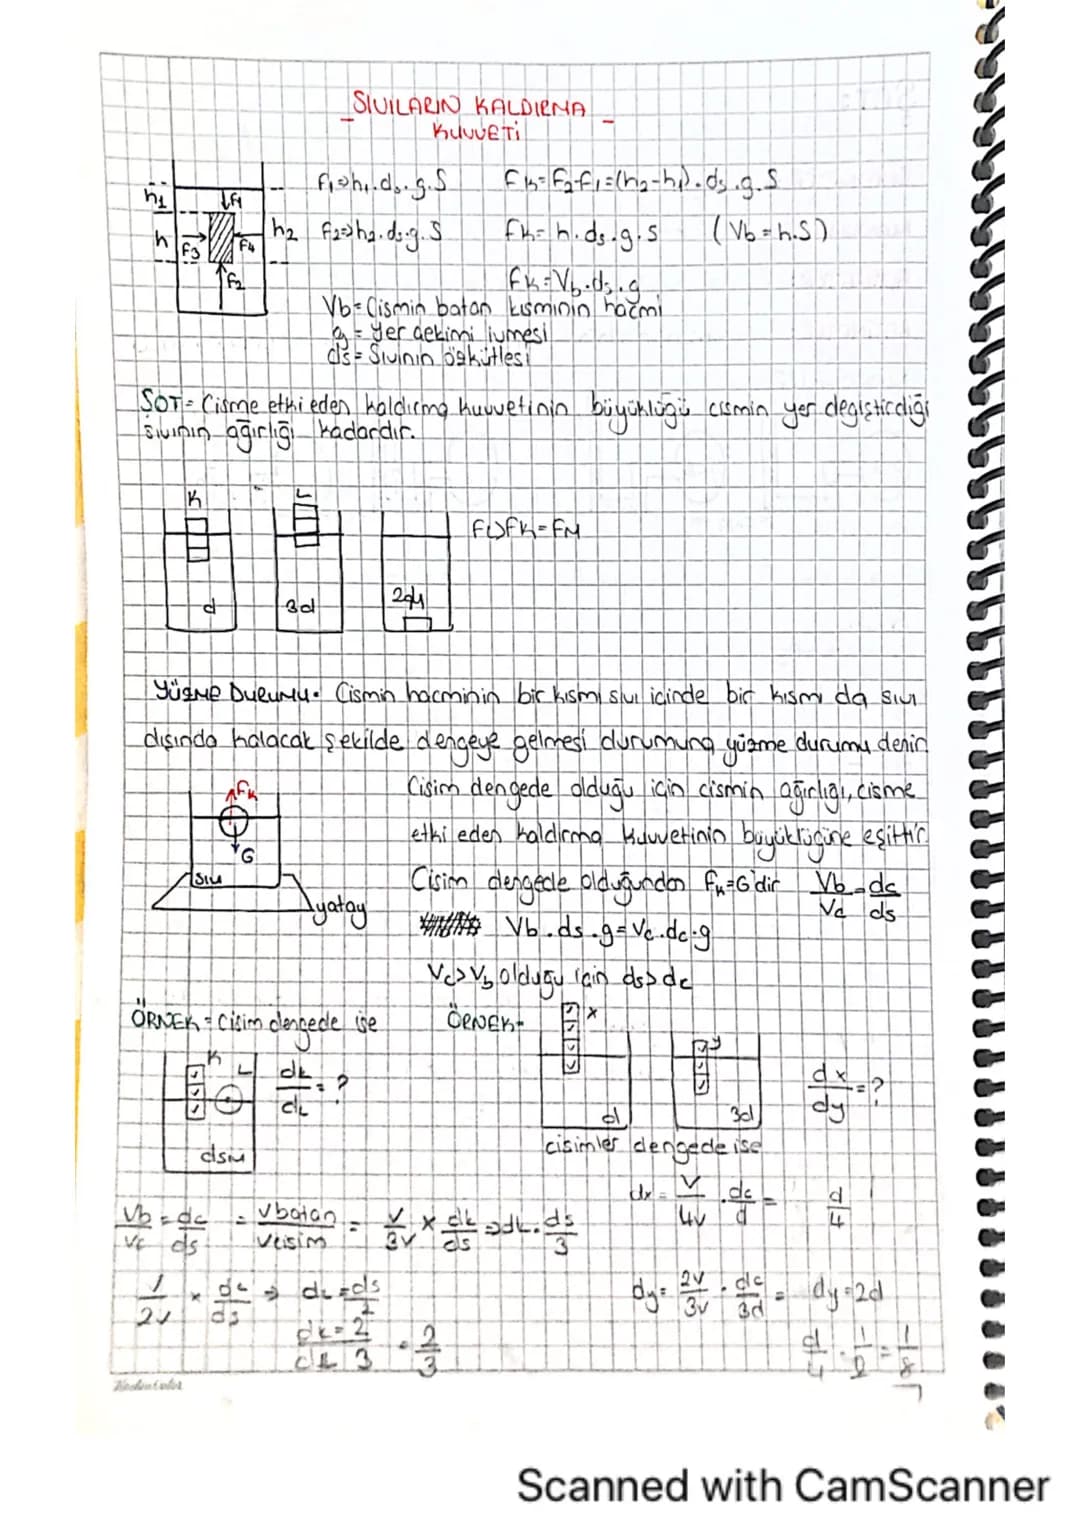 SIVILARIN KALDIRMA
KUVVETİ
h1
F1
h
F3
F4
h2
F2
F1=>h1.ds.g.S
Fk=F2-F1=(h2-h1).ds.g.S
F2=>h2.ds.g.S
Fk=h.ds.g.S
(Vb=h.S)
Fk=Vb.ds.g
Vb=Cismin batan kısmının hacmi
g=Yer çekimi ivmesi
ds=Sıvının özkütlesi
SOT= Cisme etki eden kaldırma kuvvetinin büyüklüğü cismin yer değiştirdiği
sıvının ağırlığı kadardır.
K
L
d
3d
2d
M
FL>FK=FM
YÜZME DURUMU: Cismin hacminin bir kısmı sıvı içinde bir kısmı da sıvı
dışında kalacak şekilde dengeye gelmesi durumuna yüzme durumu denir
Fk
G
sıvı
yatay
Cisim dengede olduğu için cismin ağırlığı, cisme
etki eden kaldırma kuvvetinin büyüklüğüne eşittir.
Cisim dengede olduğundan Fk=G'dir Vb/Vc=dc/ds
Vb.ds.g=Vc.dc.g
Vc>Vb olduğu için ds>dc
ÖRNEK= Cisim dengede ise
K
L
dsıvı
dk/dL=?
ÖRNEK=
x
d
y
3d
dx/dy=?
cisimler dengede ise
Vb/Vc=dc/ds = Vbatan/Vcisim = V/3V x dk/ds => dk.ds/3
1/2V x dL/ds => dL=ds/2
dk=2/dL 3 = 2/3
dx=V/4V.dc/d= d/4
dy=2V/3V.dc/3d= dy=2d
d/4.1/2=1/8
7
Scanned with CamScanner